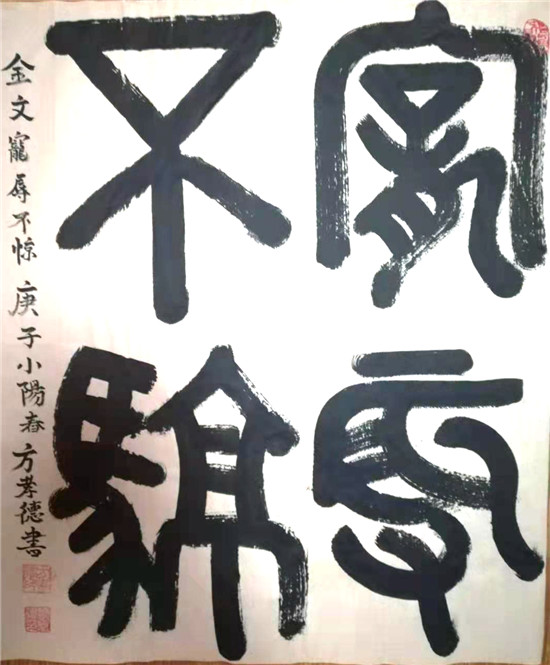 寵辱
不驚
金文寵辱不惊庚子小陽春方孝德書